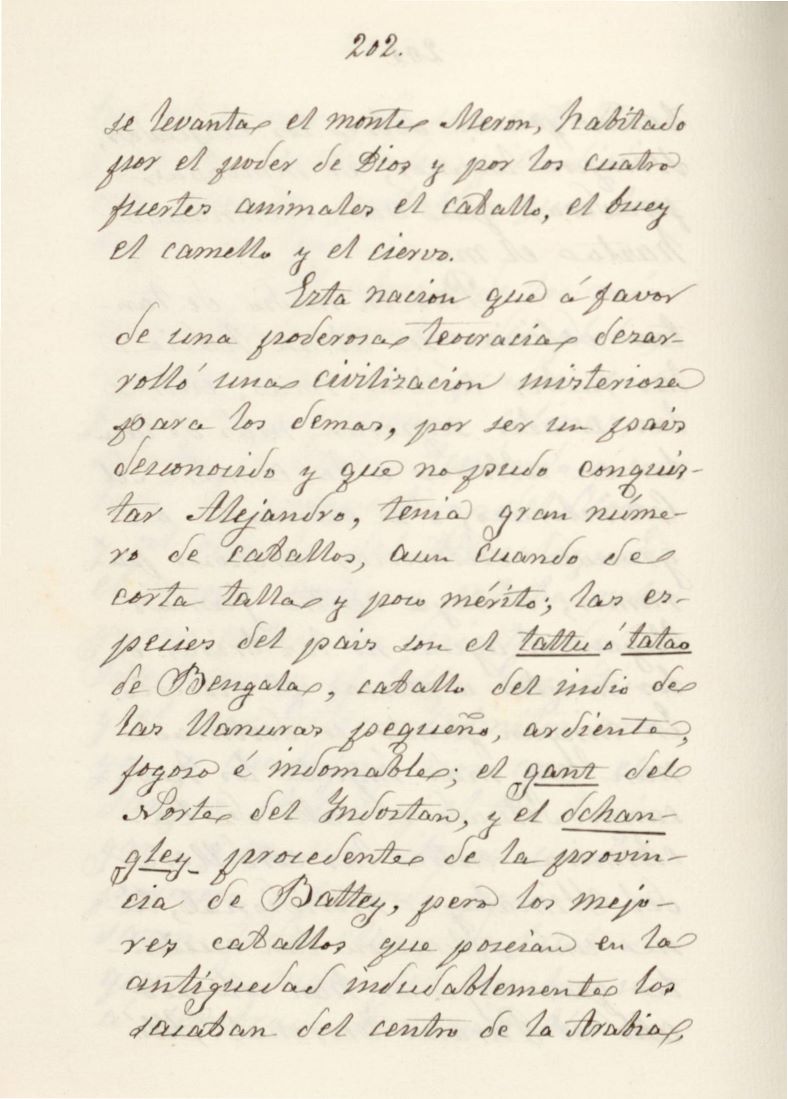 202.
se levanta el monte Meron, habitado
por el poder de Dios y por los cuatro
fuertes animales el caballo, el buey
el camello y el ciervo.
Esta nacion que á favor
de una poderosa teocracia desar-
rolló una civilizacion misteriosa
para los demas, por ser un pais
desconocido y que no pudo conquis-
tar Alejandro, tenia gran núme-
ro de caballos, aun cuando de
corta talla y poco mérito; las es-
pecies del pais son el tattu ó tatao
de Bengala, caballo del indio de
las llanuras pequeño, ardiente,
fogoso é indomable; el gant del
Norte del Indostan, y el dchan-
gley procedente de la provin-
cia de Battey, pero los mejo-
res caballos que poseian en la
antigüedad indudablemente los
sacaban del centro de la Arabia,